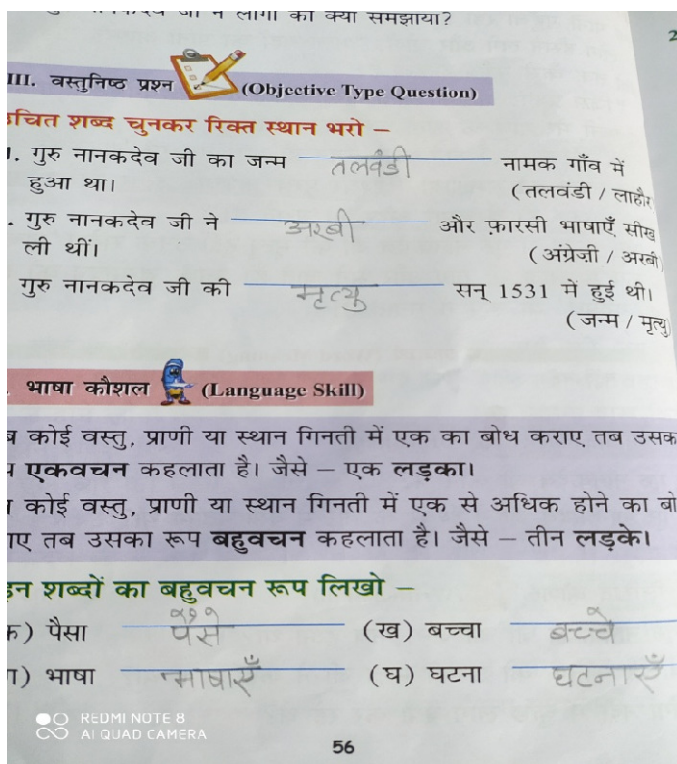 जी ने लोगों को क्या समझाया?
2
III. वस्तुनिष्ठ प्रश्न (Objective Type Question)
उचित शब्द चुनकर रिक्त स्थान भरो –
1. गुरु नानकदेव जी का जन्म तलवंडी नामक गाँव में
हुआ था। (तलवंडी / लाहौर
. गुरु नानकदेव जी ने अरबी और फ़ारसी भाषाएँ सीख
ली थीं। (अंग्रेजी / अरबी)
गुरु नानकदेव जी की मृत्यु सन् 1531 में हुई थी।
(जन्म / मृत्यु)
. भाषा कौशल (Language Skill)
ब कोई वस्तु, प्राणी या स्थान गिनती में एक का बोध कराए तब उसक
प एकवचन कहलाता है। जैसे – एक लड़का।
कोई वस्तु, प्राणी या स्थान गिनती में एक से अधिक होने का बो
ाए तब उसका रूप बहुवचन कहलाता है। जैसे – तीन लड़के।
इन शब्दों का बहुवचन रूप लिखो –
क) पैसा पैसे (ख) बच्चा बच्चे
ग) भाषा भाषाएँ (घ) घटना घटनाएँ
REDMI NOTE 8
AI QUAD CAMERA
56